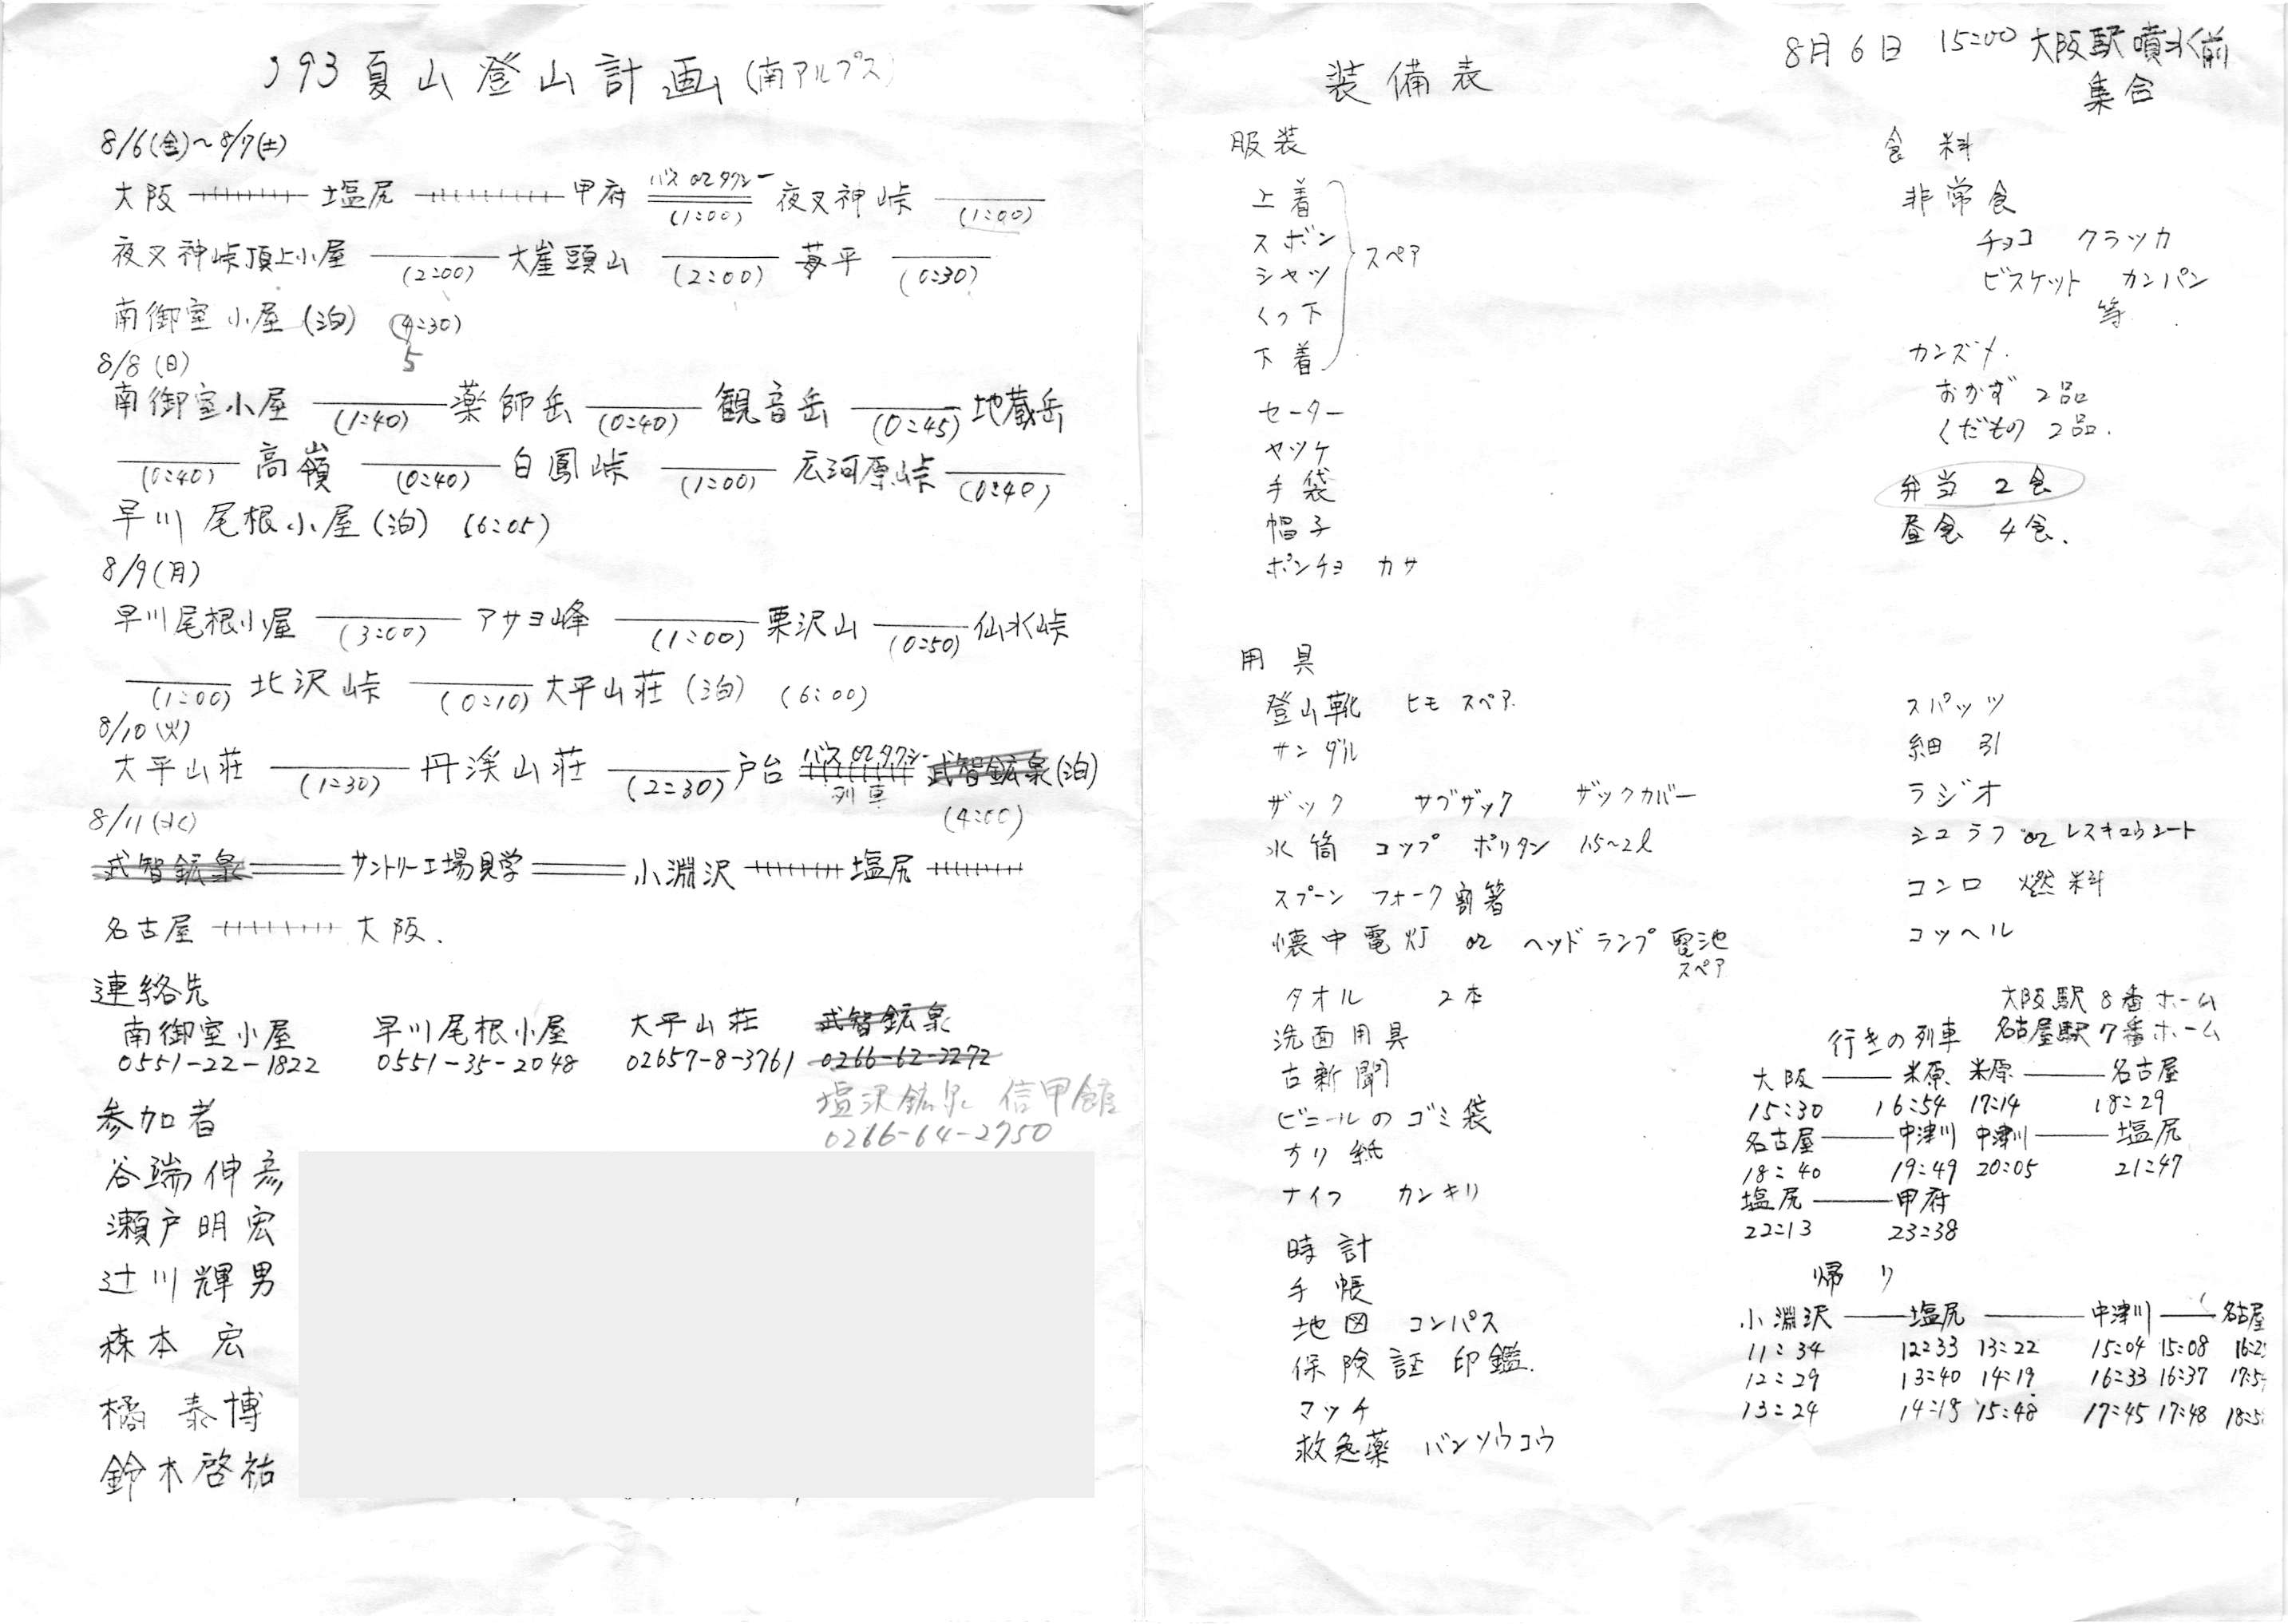 '93夏山登山計画(南アルプス)
8/6(金)~8/7(土)
大阪 塩尻 甲府 バス or タクシー (1:00) 夜叉神峠 (1:00)
夜叉神峠頂上小屋 (2:00) 大崖頭山 (2:00) 苺平 (0:30)
南御室小屋(泊) (4:30)
5
8/8(日)
南御室小屋 (1:40) 薬師岳 (0:40) 観音岳 (0:45) 地蔵岳
(0:40) 高嶺 (0:40) 白鳳峠 (1:00) 広河原峠 (0:40)
早川尾根小屋(泊) (6:05)
8/9(月)
早川尾根小屋 (3:00) アサヨ峰 (1:00) 栗沢山 (0:50) 仙水峠
(1:00) 北沢峠 (0:10) 大平山荘(泊) (6:00)
8/10(火)
大平山荘 (1:30) 丹渓山荘 (2:30) 戸台 バス or タクシー 列車 武智鉱泉(泊)
(4:00)
8/11(水)
武智鉱泉 サントリー工場見学 小淵沢 塩尻
名古屋 大阪.
連絡先
南御室小屋 早川尾根小屋 大平山荘 武智鉱泉
0551-22-1822 0551-35-2048 02657-8-3761 0266-62-2272
塩沢鉱泉 信甲館
0266-64-2750
参加者
谷端伸彦
瀬戸明宏
辻川輝男
森本 宏
橘 泰博
鈴木啓祐
8月6日 15:00 大阪駅噴水前
集合
装備表
服装
上着
スボン
シャツ
くつ下
下着
スペア
セーター
ヤッケ
手袋
帽子
ポンチョ カサ
食料
非常食
チョコ クラッカ
ビスケット カンパン
等
カンズメ.
おかず 2品
くだもの 2品.
弁当 2食
昼食 4食.
用具
登山靴 ヒモ スペア.
サンダル
ザック サブザック ザックカバー
水筒 コップ ポリタン 1.5~2l
スプーン フォーク 割箸
懐中電灯 or ヘッドランプ 電池
スペア
タオル 2本
洗面用具
古新聞
ビニールのゴミ袋
チリ紙
ナイフ カンキリ
時計
手帳
地図 コンパス
保険証 印鑑.
マッチ
救急薬 バンソウコウ
スパッツ
細引
ラジオ
シュラフ or レスキュウシート
コンロ 燃料
コッヘル
大阪駅 8番ホーム
行きの列車 名古屋駅 7番ホーム
大阪 米原 米原 名古屋
15:30 16:54 17:14 18:29
名古屋 中津川 中津川 塩尻
18:40 19:49 20:05 21:47
塩尻 甲府
22:13 23:38
帰り
小淵沢 塩尻 中津川 名古屋
11:34 12:33 13:22 15:04 15:08 16:2
12:29 13:40 14:19 16:33 16:37 17:5
13:24 15:48 17:45 17:48 18:5